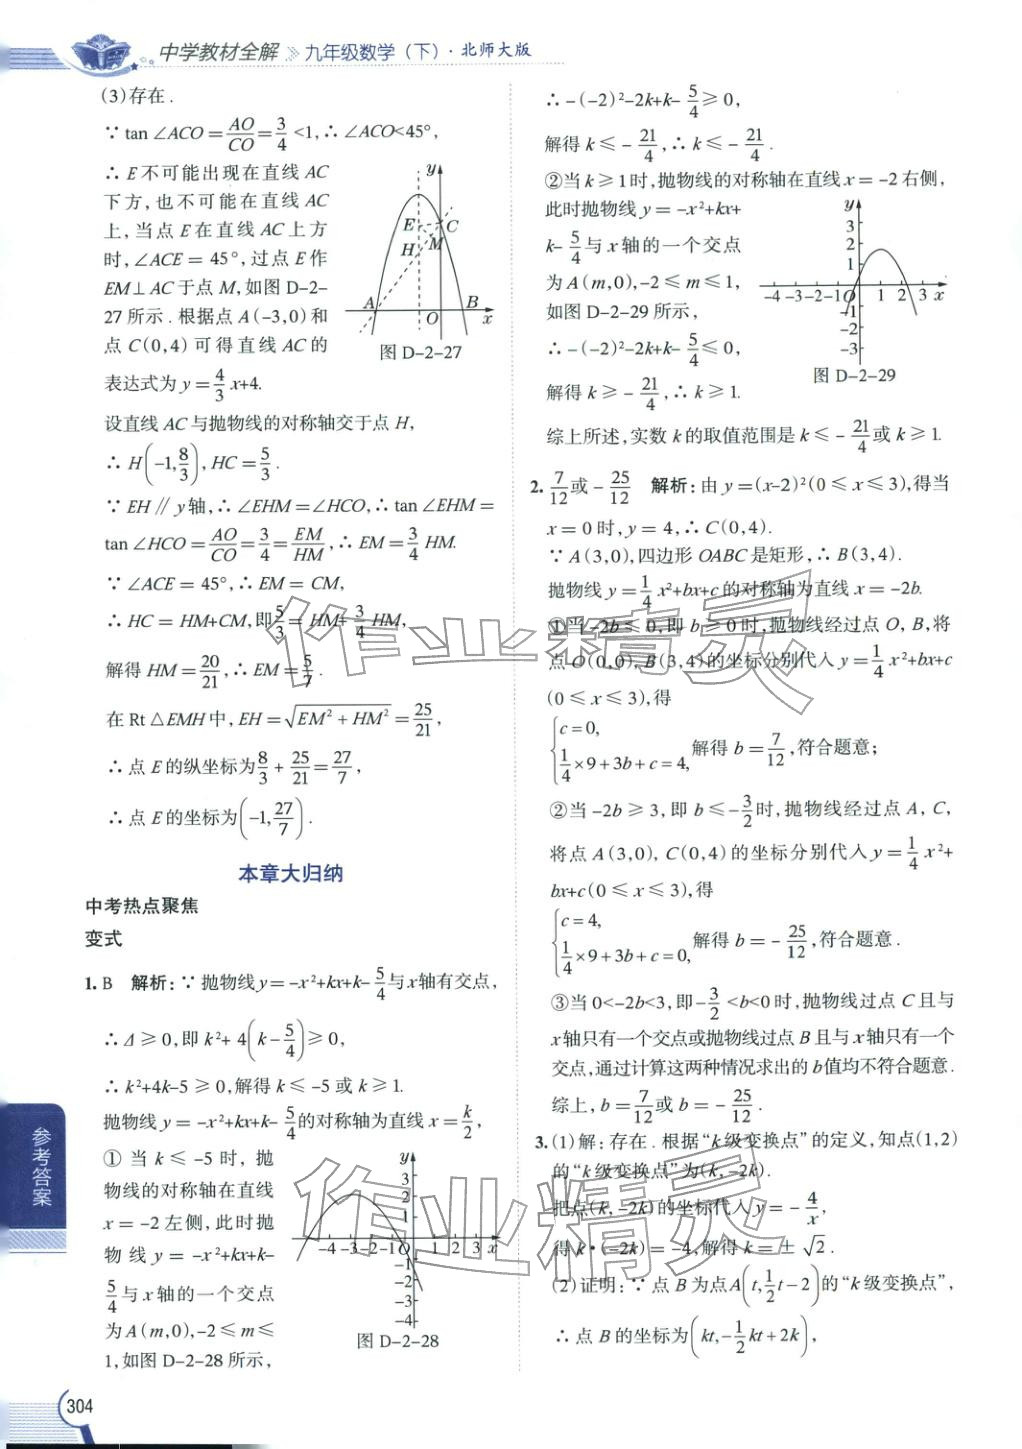 中学教材全解 九年级数学（下）·北师大版
(3)存在.
∵ tan ∠ACO = AO/CO = 3/4 <1,∴ ∠ACO<45°,
∴ E不可能出现在直线 AC
下方,也不可能在直线 AC
上,当点 E 在直线 AC 上方
时,∠ACE = 45°,过点 E 作
EM⊥AC 于点 M,如图 D-2-
27 所示.根据点 A(-3,0)和
点 C(0,4)可得直线 AC 的
表达式为 y = 4/3 x+4.
y
E
C
H
M
A
O
B
x
图 D-2-27
设直线 AC 与抛物线的对称轴交于点 H,
∴ H(-1, 8/3), HC = 5/3.
∵ EH∥y轴,∴ ∠EHM = ∠HCO,∴ tan ∠EHM =
tan ∠HCO = AO/CO = 3/4 = EM/HM,∴ EM = 3/4 HM.
∵ ∠ACE = 45°,∴ EM = CM,
∴ HC = HM+CM,即 5/3 = HM+ 3/4 HM,
解得 HM = 20/21,∴ EM = 5/7.
在 Rt△EMH 中, EH = √(EM² + HM²) = 25/21,
∴ 点 E 的纵坐标为 8/3 + 25/21 = 27/7,
∴ 点 E 的坐标为 (-1, 27/7).
本章大归纳
中考热点聚焦
变式
1. B 解析:∵ 抛物线 y = -x²+kx+k- 5/4 与 x 轴有交点,
∴ Δ ≥ 0,即 k²+ 4(k - 5/4) ≥ 0,
∴ k²+4k-5 ≥ 0,解得 k ≤ -5 或 k ≥ 1.
抛物线 y = -x²+kx+k- 5/4 的对称轴为直线 x = k/2,
① 当 k ≤ -5 时, 抛
物线的对称轴在直线
x = -2 左侧,此时抛
物 线 y = -x²+kx+k-
5/4 与 x 轴的一个交点
为 A(m,0),-2 ≤ m ≤
1,如图 D-2-28 所示,
y
3
2
1
-4 -3 -2 -1 O 1 2 3 x
-1
-2
-3
-4
图 D-2-28
∴ -(-2)²-2k+k- 5/4 ≥ 0,
解得 k ≤ - 21/4,∴ k ≤ - 21/4.
②当 k ≥ 1时,抛物线的对称轴在直线 x = -2 右侧,
此时抛物线 y = -x²+kx+
k- 5/4 与 x 轴的一个交点
为 A(m,0),-2 ≤ m ≤ 1,
如图 D-2-29 所示,
∴ -(-2)²-2k+k- 5/4 ≤ 0,
解得 k ≥ - 21/4,∴ k ≥ 1.
y
3
2
1
-4 -3 -2 -1 O 1 2 3 x
-1
-2
-3
图 D-2-29
综上所述,实数 k 的取值范围是 k ≤ - 21/4 或 k ≥ 1.
2. 7/12 或 - 25/12 解析:由 y = (x-2)²(0 ≤ x ≤ 3),得当
x = 0 时, y = 4,∴ C(0,4).
∵ A(3,0),四边形 OABC 是矩形,∴ B(3,4).
抛物线 y = 1/4 x²+bx+c 的对称轴为直线 x = -2b.
①当 -2b ≤ 0,即 b ≥ 0 时,抛物线经过点 O, B,将
点 O(0,0), B(3,4)的坐标分别代入 y = 1/4 x²+bx+c
(0 ≤ x ≤ 3),得
{c = 0,
1/4 ×9+3b+c = 4, 解得 b = 7/12,符合题意;
②当 -2b ≥ 3,即 b ≤ - 3/2 时,抛物线经过点 A, C,
将点 A(3,0), C(0,4)的坐标分别代入 y = 1/4 x²+
bx+c(0 ≤ x ≤ 3),得
{c = 4,
1/4 ×9+3b+c = 0, 解得 b = - 25/12,符合题意.
③当 0<-2b<3,即- 3/2 <b<0 时,抛物线过点 C 且与
x 轴只有一个交点或抛物线过点 B 且与 x 轴只有一个
交点,通过计算这两种情况求出的 b 值均不符合题意.
综上, b = 7/12 或 b = - 25/12.
3. (1)解:存在.根据“k 级变换点”的定义,知点(1,2)
的“k 级变换点”为(k,-2k).
把点(k,-2k)的坐标代入 y = - 4/x,
得 k·(-2k) = -4,解得 k = ± √2.
(2)证明:∵ 点 B 为点 A(t, 1/2 t-2)的“k 级变换点”,
∴ 点 B 的坐标为 (kt, - 1/2 kt+2k),
参考答案
304
作业精灵
作业精灵